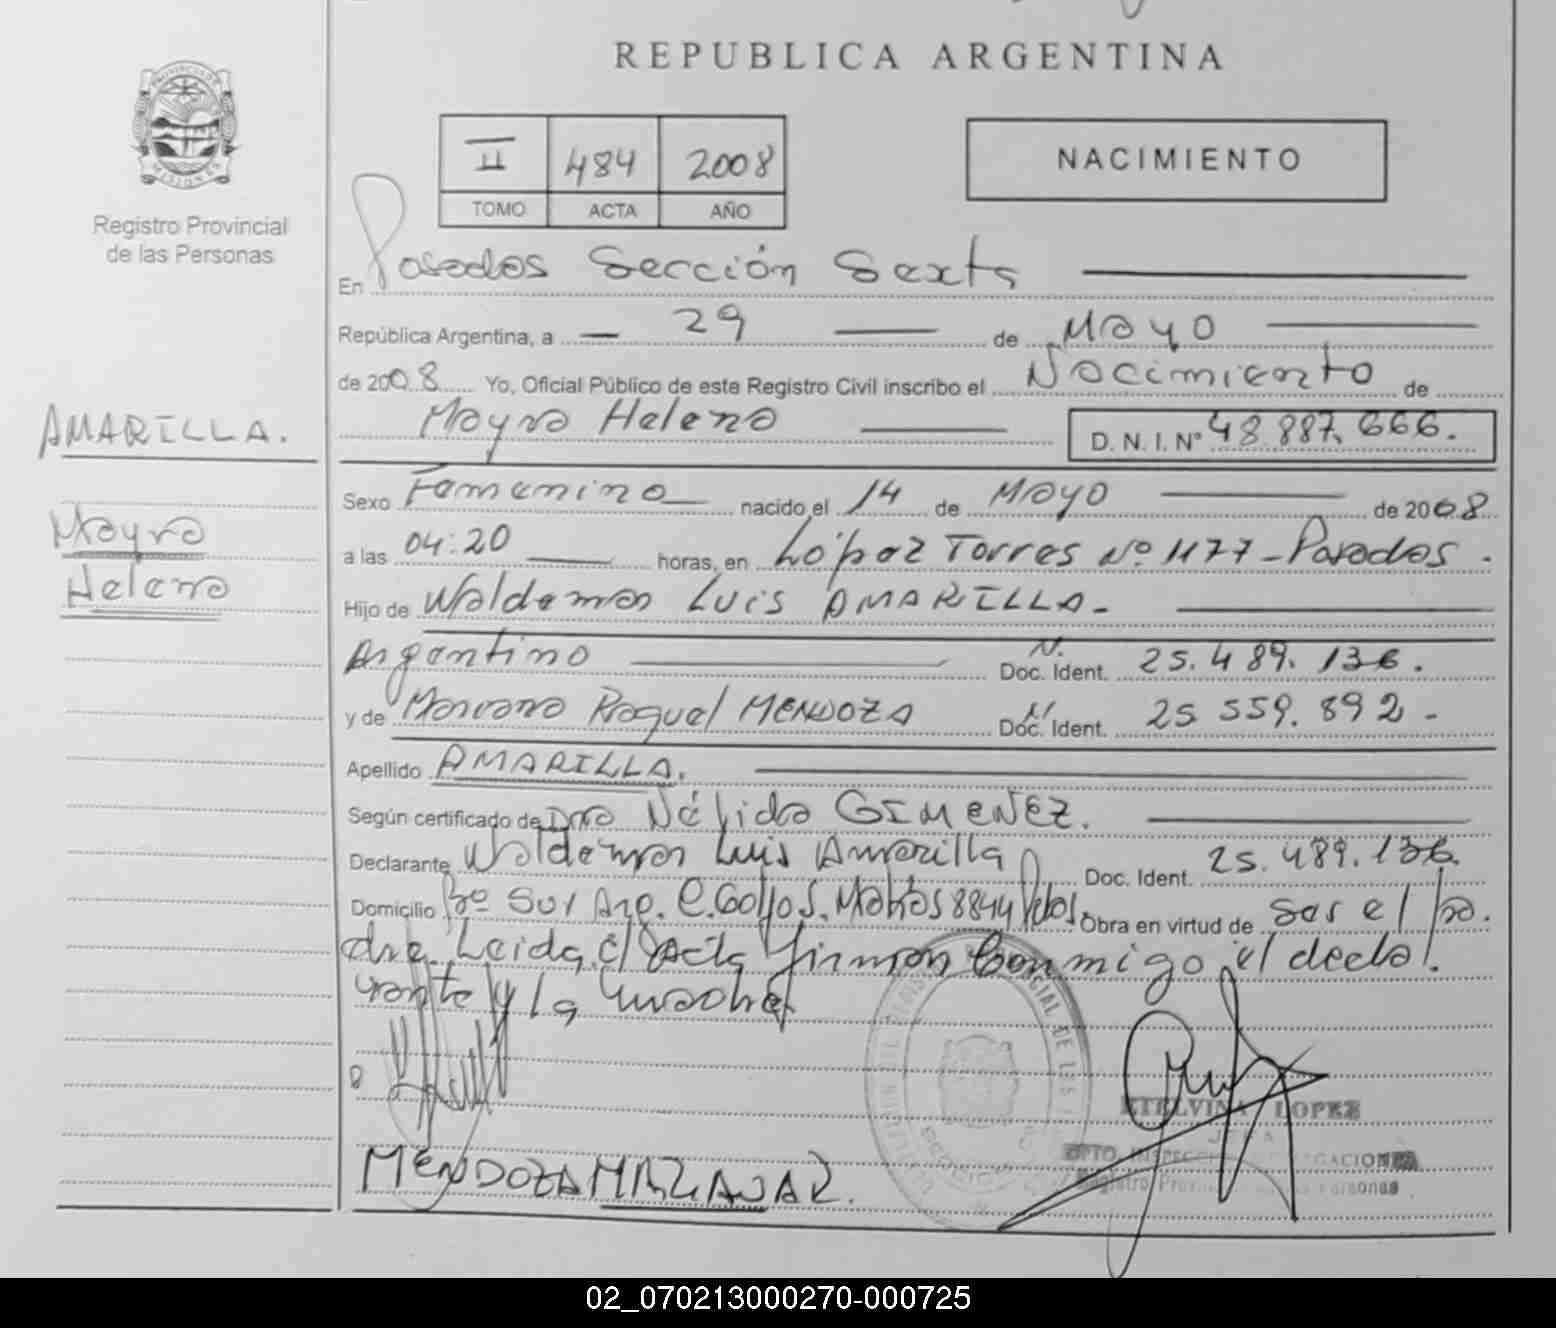 REPUBLICA ARGENTINA
PROVINCIA DE
MISIONES
Registro Provincial
de las Personas
II 484 2008
TOMO ACTA AÑO
NACIMIENTO
En Posadas Sección Sexta
República Argentina, a 29 de Mayo
de 2008 Yo, Oficial Público de este Registro Civil inscribo el Nacimiento de
AMARILLA.
Mayra Helena D. N. I. Nº 48.887.666.
Mayra
Helena
Sexo Femenino nacido el 14 de Mayo de 2008
a las 04:20 horas, en López Torres Nº 1177 - Posadas.
Hijo de Waldemar Luis AMARILLA.
Argentino Doc. Ident. N. 25.489.136.
y de Raquel MENDOZA Doc. Ident. N. 25 559.892-
Apellido AMARILLA.
Según certificado de Dra Nélida GIMENEZ.
Declarante Waldemar Luis Amarilla Doc. Ident. 25.489.136.
Domicilio Bº Sur Arg. 8844 Pdas. Obra en virtud de ser el pa.
dre. Leida el Acta firman conmigo el decla.
rante y la madre
ETELVINA LOPEZ
JEFA
DPTO. INSPECCI
Registro Prov Personas
MENDOZA MR R.
02_070213000270-000725